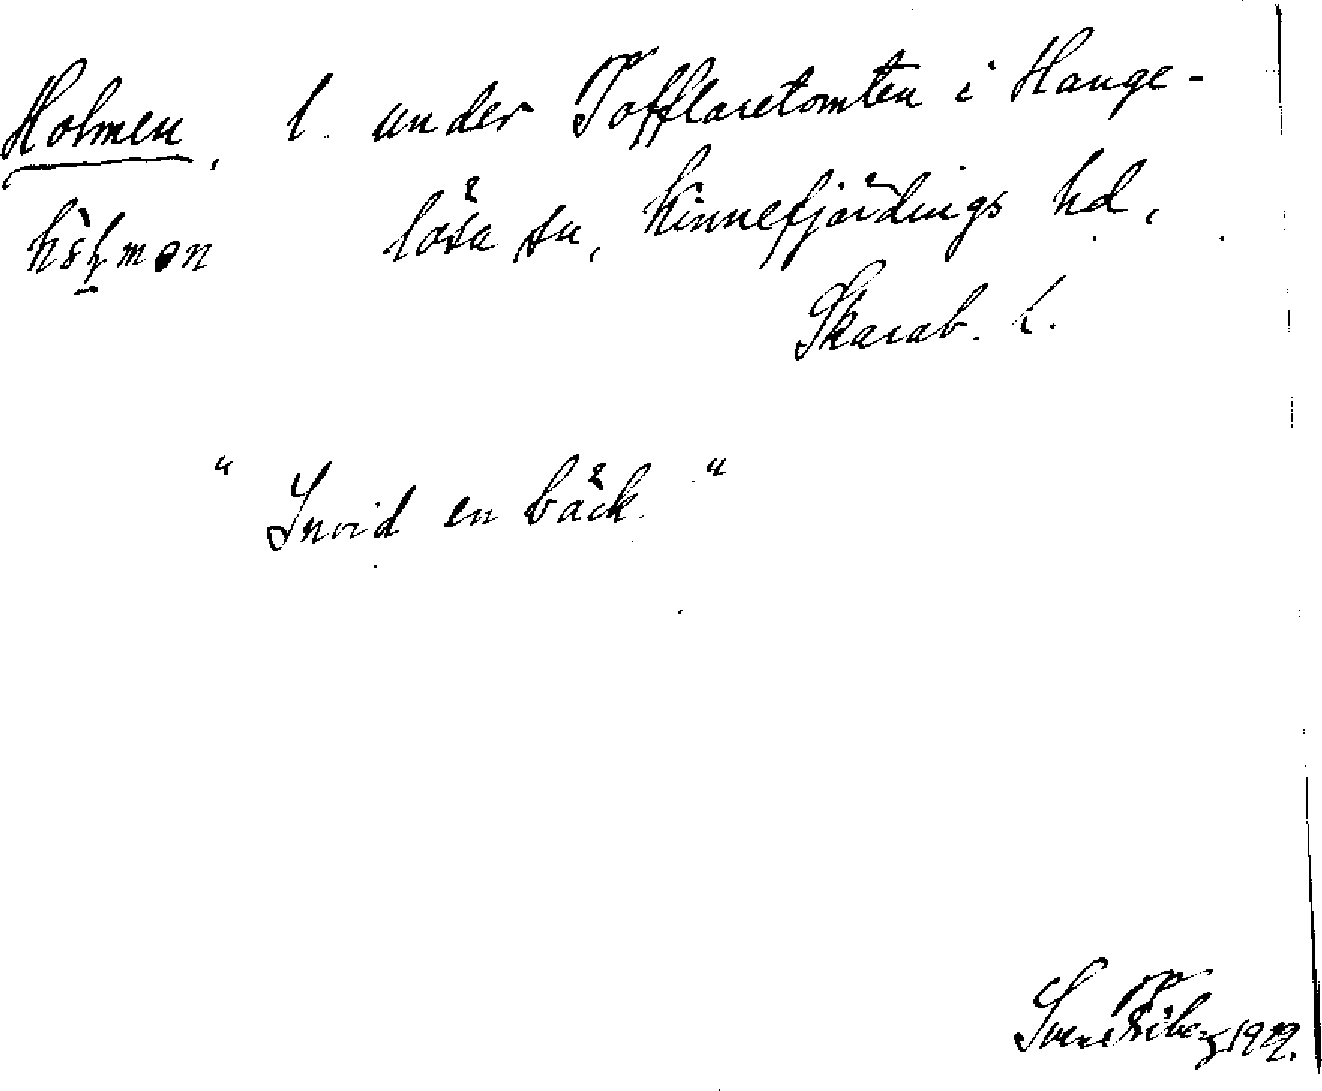 Holmen, l. under Tofflaretomten i Hange-
lösa sn, Kinnefjärdings hd,
Skarab. l.
"Invid en bäck."
Sven 1929.